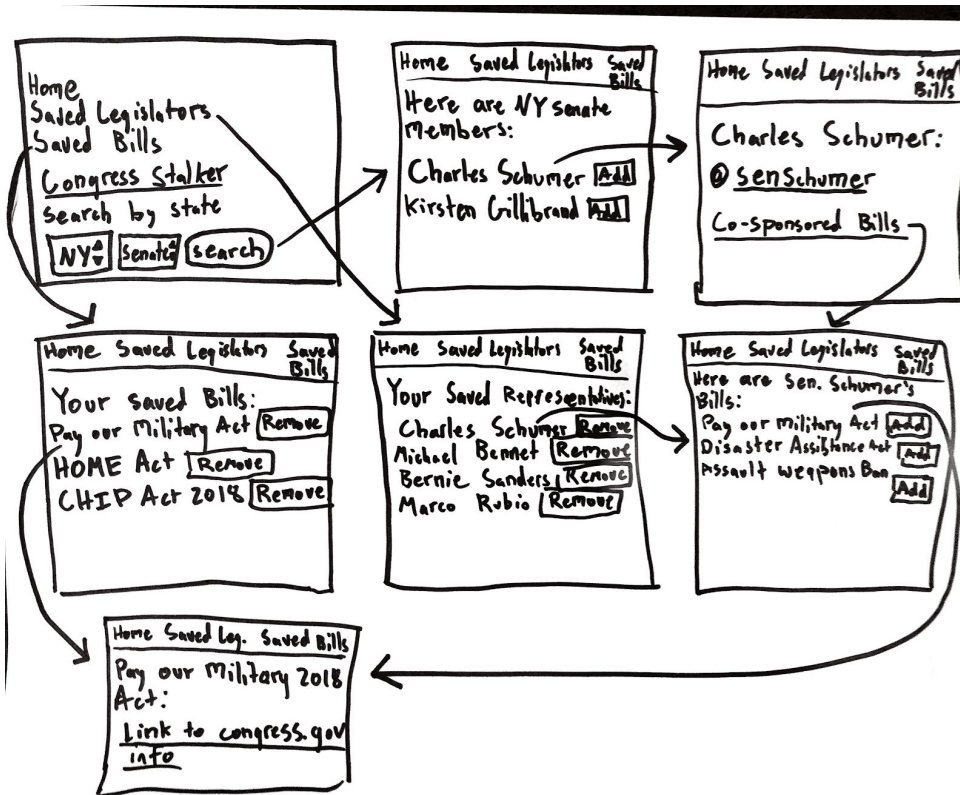 Home
Saved Legislators
Saved Bills
Congress Stalker
search by state
NY Senate search
Home Saved Legislators Saved
Bills
Here are NY senate
members:
Charles Schumer Add
Kirsten Gillibrand Add
Home Saved Legislators Saved
Bills
Charles Schumer:
@ SenSchumer
Co-sponsored Bills
Home Saved Legislators Saved
Bills
Your saved Bills:
Pay our Military Act Remove
HOME Act Remove
CHIP Act 2018 Remove
Home Saved Legislators Saved
Bills
Your Saved Representatives:
Charles Schumer Remove
Michael Bennet Remove
Bernie Sanders Remove
Marco Rubio Remove
Home Saved Legislators Saved
Bills
Here are Sen. Schumer's
Bills:
Pay our military Act Add
Disaster Assistance Act Add
Assault weapons Ban
Add
Home Saved Leg. Saved Bills
Pay our Military 2018
Act:
Link to congress.gov
info